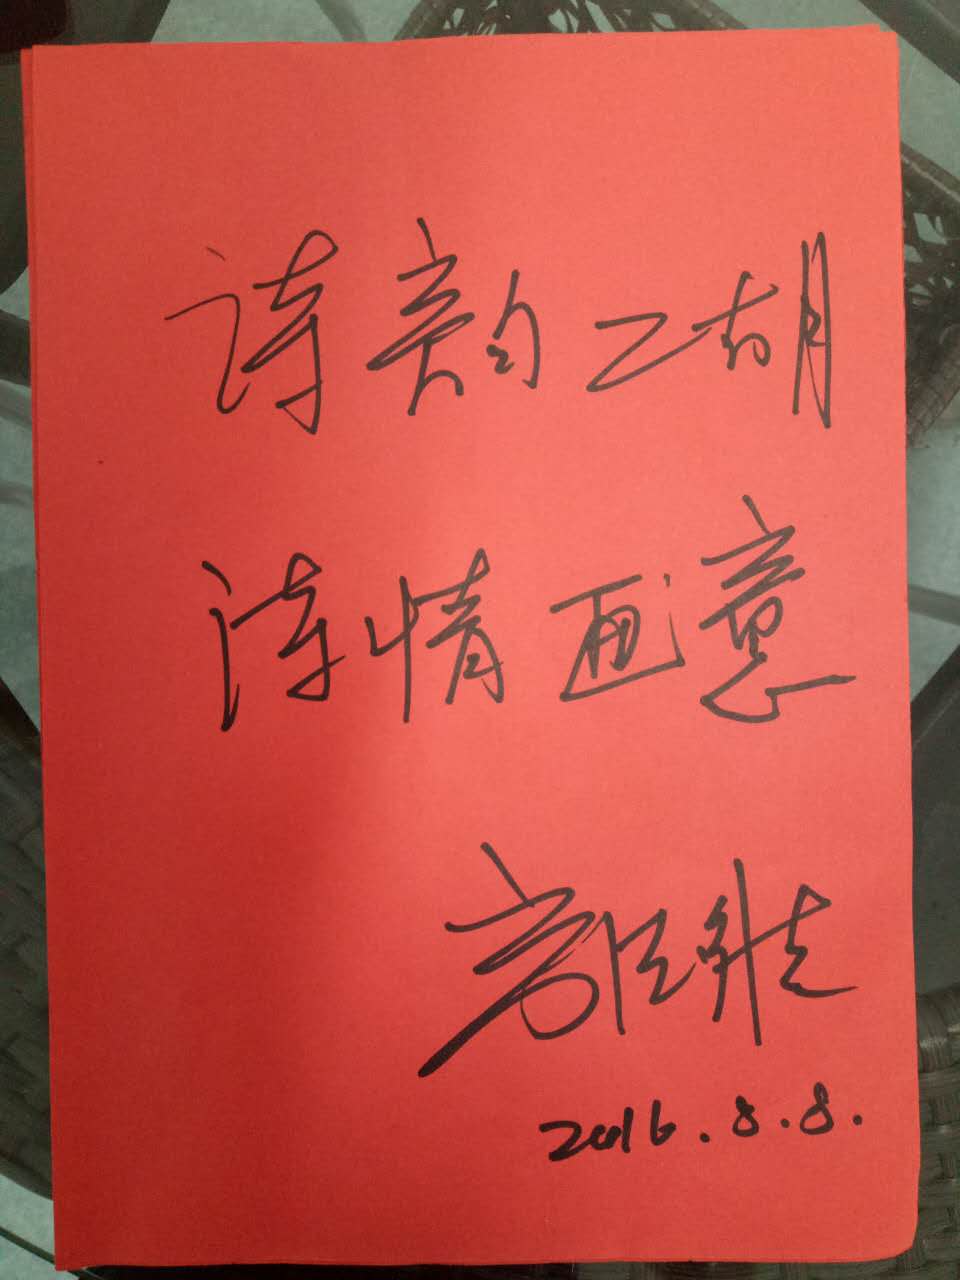 诗韵二胡
诗情画意
2016.8.8.